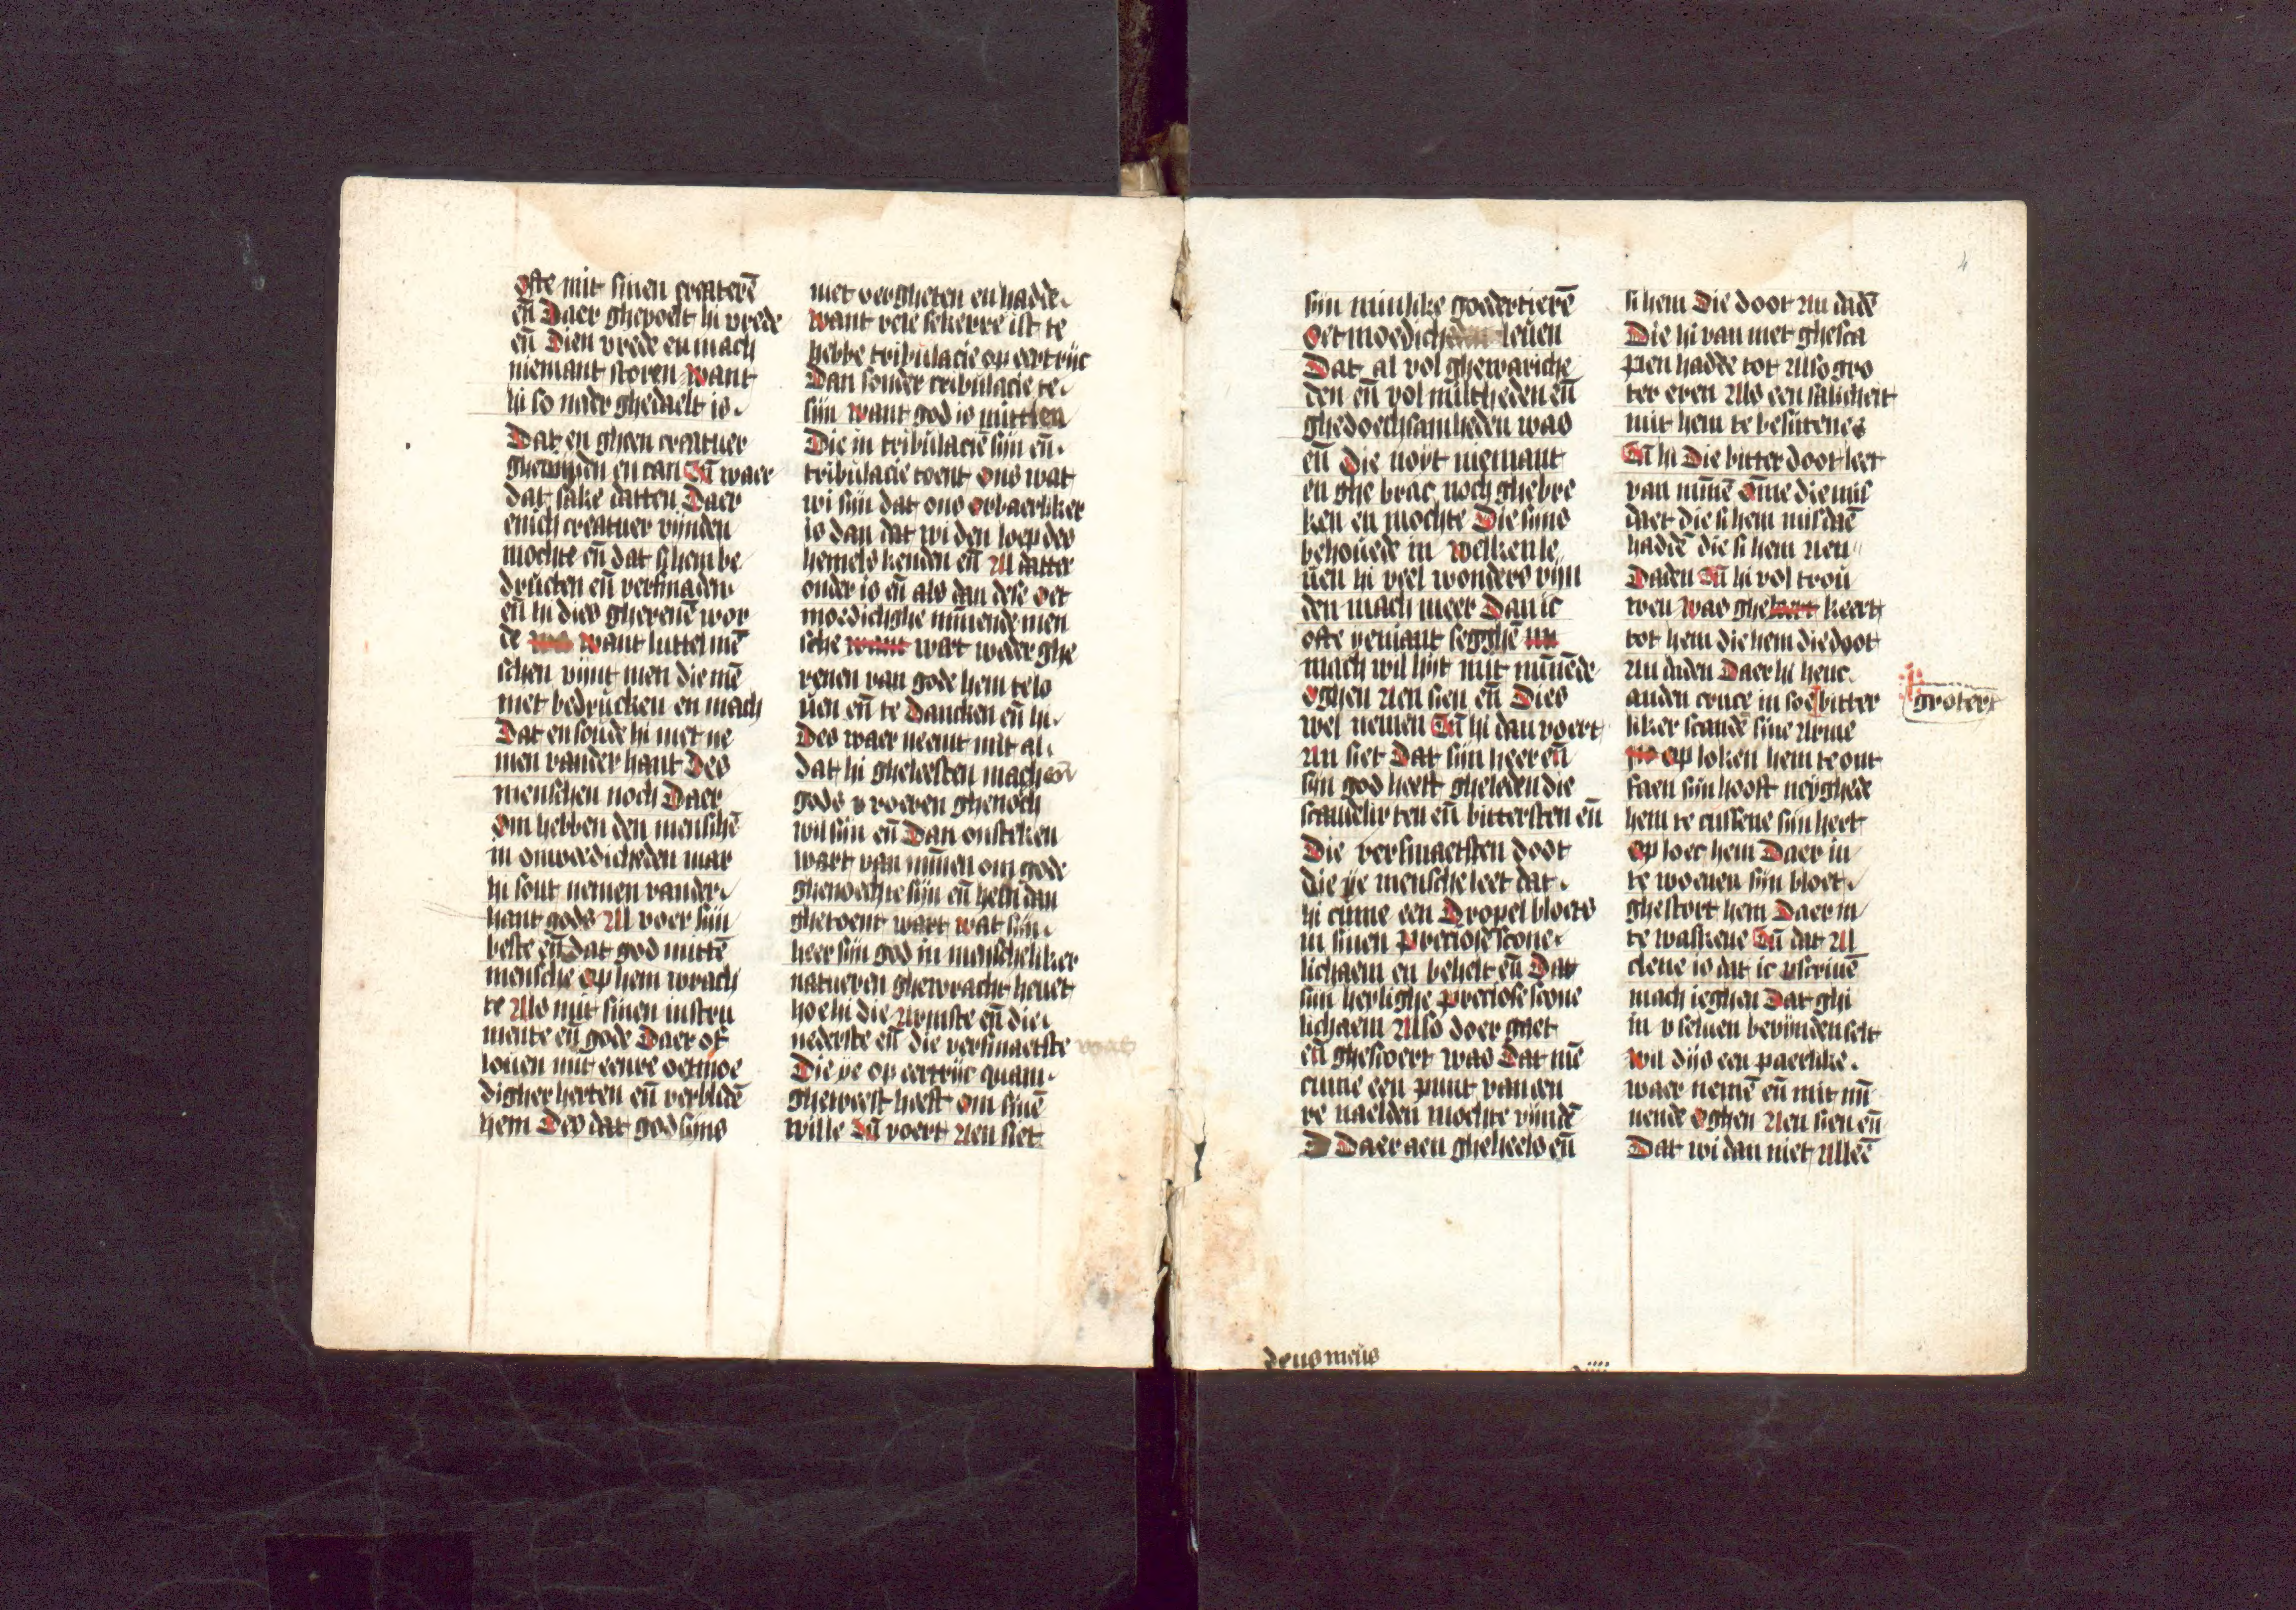 ofte mit sinen createrē
eñ Daer ghevoelt hi vrede
eñ Dien vrede en mach
niemant storen want
hi so neder ghedaelt is
Dat en gheen creatuer
ghevinden en can Eñ waer
dat sake datten Daer
enich creatuer vijnden
mochte eñ dat si hem be
drucken eñ versmaden
eñ hi dies gherenē wor
de want luttel mē
schen vijnt men die mē
niet bedrucken en mach
Dat en soude hi niet ne
men vander hant Des
menschen noch Daer
Om hebben den menschē
in onwerdicheden mar
hi sout nemen vander
hant gods Al voer sijn
beste eñ dat god mittē
mensche Op hem wrach
te Als mit sinen instru
mente eñ gode Daer of
louen mit eenre oetmoe
digher herten eñ verblidē
hem Des dat god sijns
niet vergheten en hadde
want vele sekerre ist te
hebbe tribulacie op eertrijc
Dan sonder tribulacie te
sijn want god is mittien
Die in tribulaciē sijn eñ
tribulacie toent ons wat
wi sijn dat ons orbaerliker
is dan dat wi den loep des
hemels kenden eñ Al datter
onder is eñ als dan dese oet
moedichghe minnende men
sche want wart weder ghe
venen van gode hem te lo
uen eñ te Dancken eñ hi
Des waer neemt mit al
dat hi gheleesten mach eñ
gods vroeren ghenoch
wil sijn eñ Dan onsteken
wart van minnen om gode
ghenoechte sijn eñ hem dan
ghetoent wart wat sijn
heer sijn god in menscheliker
natueren ghewracht heuet
hoe hi die Armste eñ die
nederste eñ die versmaetste
was
Die ye op eertrijc quam
gheweest heeft om sinē
wille Eñ voert Aen siet
4
sijn minlike goedertierē
Oetmoedich leuen
Dat al vol ghewariche
den eñ vol miltheden eñ
ghedoechsamheden was
eñ die noyt niemant
en ghe brac noch ghebre
ken en mochte Die sijns
behouede in welken le
uen hi veel wonders vijn
den mach meer Dan ic
ofte yemant segghē
mach wil hijt mit minnēde
oghen Aen sien eñ Dies
wel nemen Eñ hi dan voert
An siet Dat sijn heer eñ
sijn god heeft gheleden die
scandelixten eñ bittersten eñ
Die versmaetsten doot
die ye mensche leet dat
hi cume een Dropel bloets
in sinen preciose scone
lichaem en behelt eñ Dat
sijn herlighe preciose scone
lichaem Also doer ghiet
eñ ghescoert was Dat mē
cume een punt van een
re naelden mochte vijndē
Daer aen gheheels eñ
deus meus
si hem Die doot An dadē
Die hi van niet ghesca
pen hadde tot Also gro
ter eren Als een salicheit
mit hem te besittene
Eñ hi Die bitter doot leet
van minnē Ome die mis
daet die si hem misdaē
haddē die si hem Aen
Daden Eñ hi vol trou
wen was ghe keert
tot hem die hem die doot
An daden Daer hi henc
anden cruce in soe bitter
groter
liker scandē sine Arme
Op loken hem te ont
faen sijn hooft neyghede
hem te cussene sijn heert
Op loec hem Daer in
te woenen sijn bloet
ghestort hem Daer in
te waskene Eñ dat Al
clene is dat ic vscriuē
mach ieghen Dat ghi
in v seluen bevijnden selt
wil dijs een paerlike
waer nemē eñ mit min
nende Oghen Aen sien eñ
Dat wi dan niet Alleē